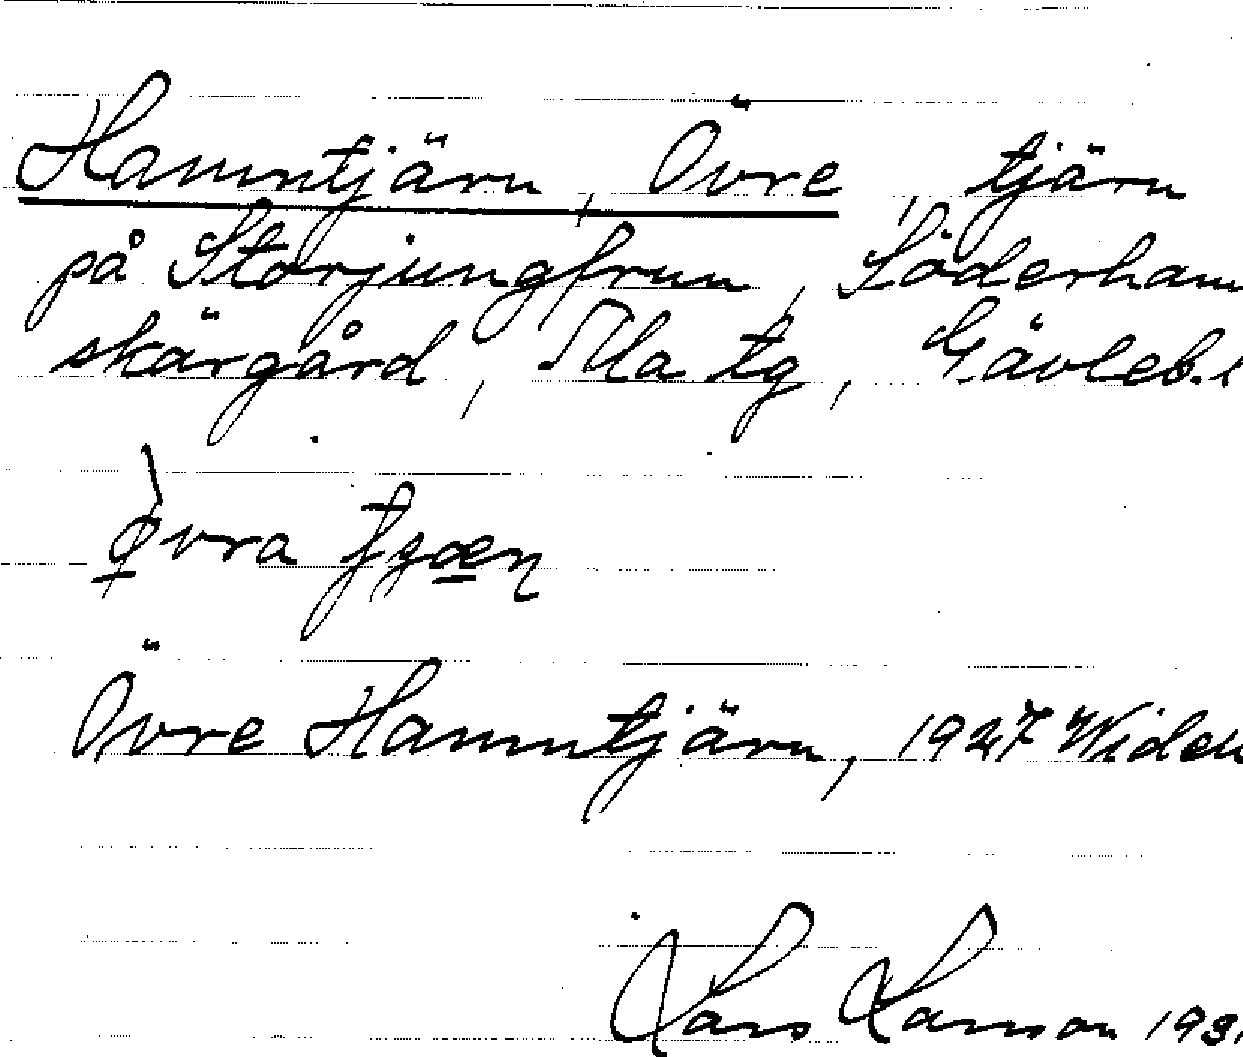 Hamntjärn, Övre, tjärn
på Storjungfrun, Söderham
skärgård, Ala tg, Gävleb.
Övre Hamntjärn, 1927 Widen
Lars Larsson 193